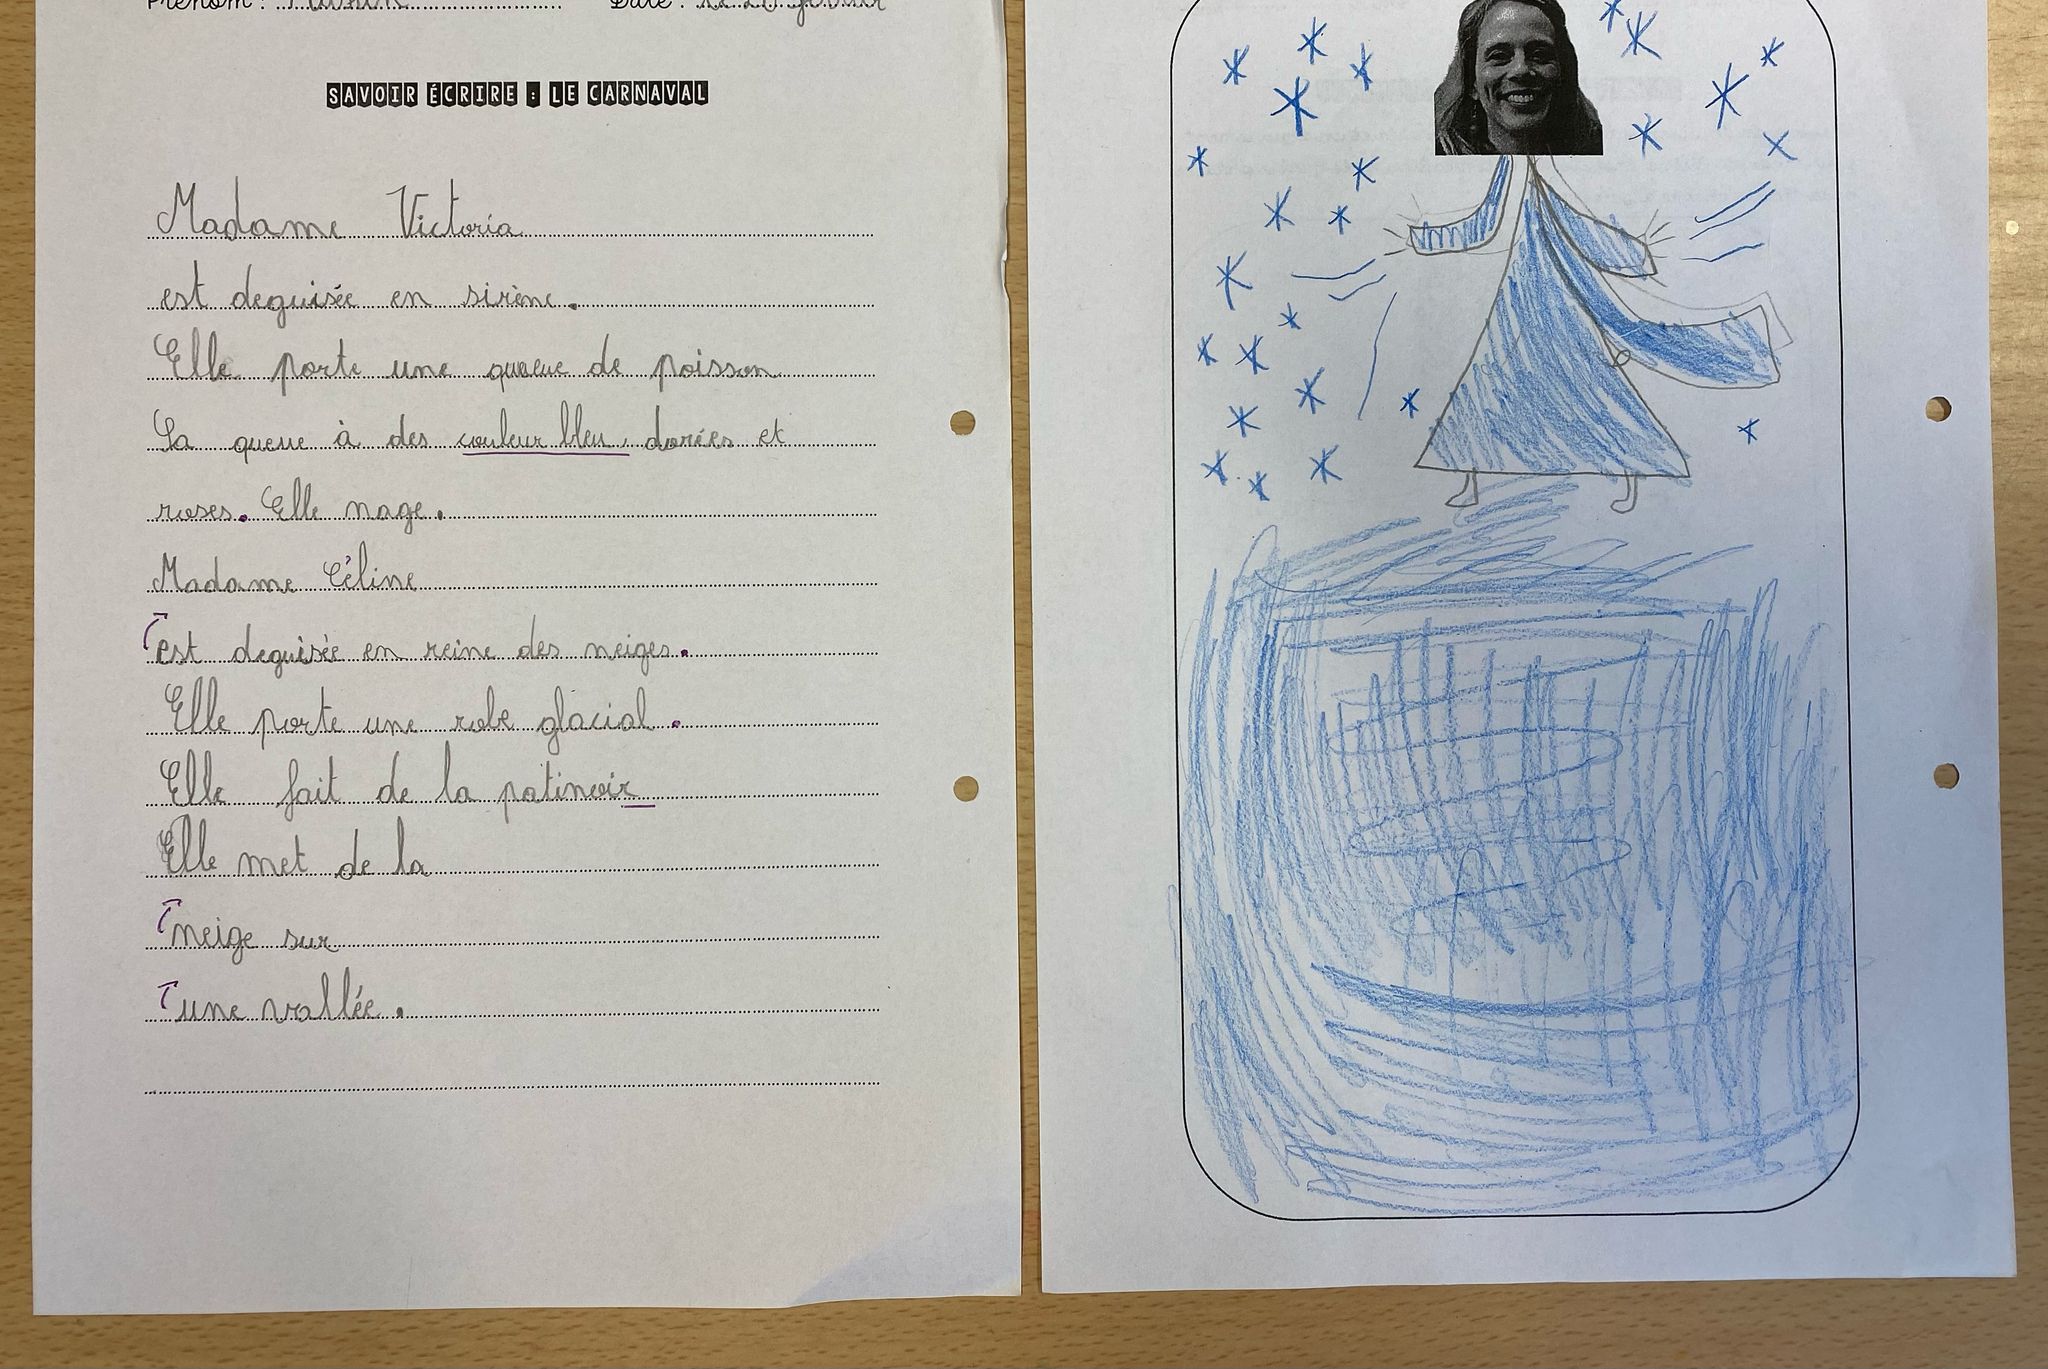 Prénom :
Date :
SAVOIR ÉCRIRE : LE CARNAVAL
Madame Victoria
est deguisée en sirène.
Elle porte une queue de poisson
Sa queue à des couleur bleu, dorées et
roses. Elle nage.
Madame Céline
est deguisée en reine des neiges.
Elle porte une robe glacial.
Elle fait de la patinoir
Elle met de la
neige sur
une vallée.